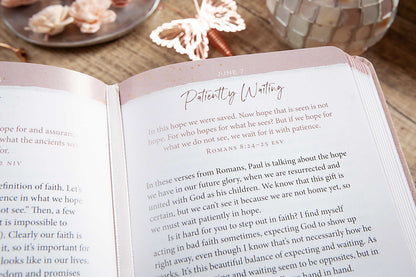 pe for and assuranc
what the ancients we
2 NIV
definition of faith. Let's
idence in what we hope
not see." Then, a few
t is impossible to
). Clearly our faith is
t, so it's important for
looks like in our lives.
edom and promises
JUNE 7
Patiently Waiting
In this hope we were saved. Now hope that is seen is not
hope. For who hopes for what he sees? But if we hope for
what we do not see, we wait for it with patience.
Romans 8:24-25 ESV
In these verses from Romans, Paul is talking about the hope
we have in our future glory, when we are resurrected and
united with God as his children. We know that this gift is
certain, but we can't see it because we are not home yet, so
we must wait patiently in hope.
Is it hard for you to step out in faith? I find myself
acting in bad faith sometimes, expecting God to show up
right away, even though I know that's not necessarily how he
works. It's this beautiful balance of expecting and waiting. As
and waiting seem to be opposites, but in